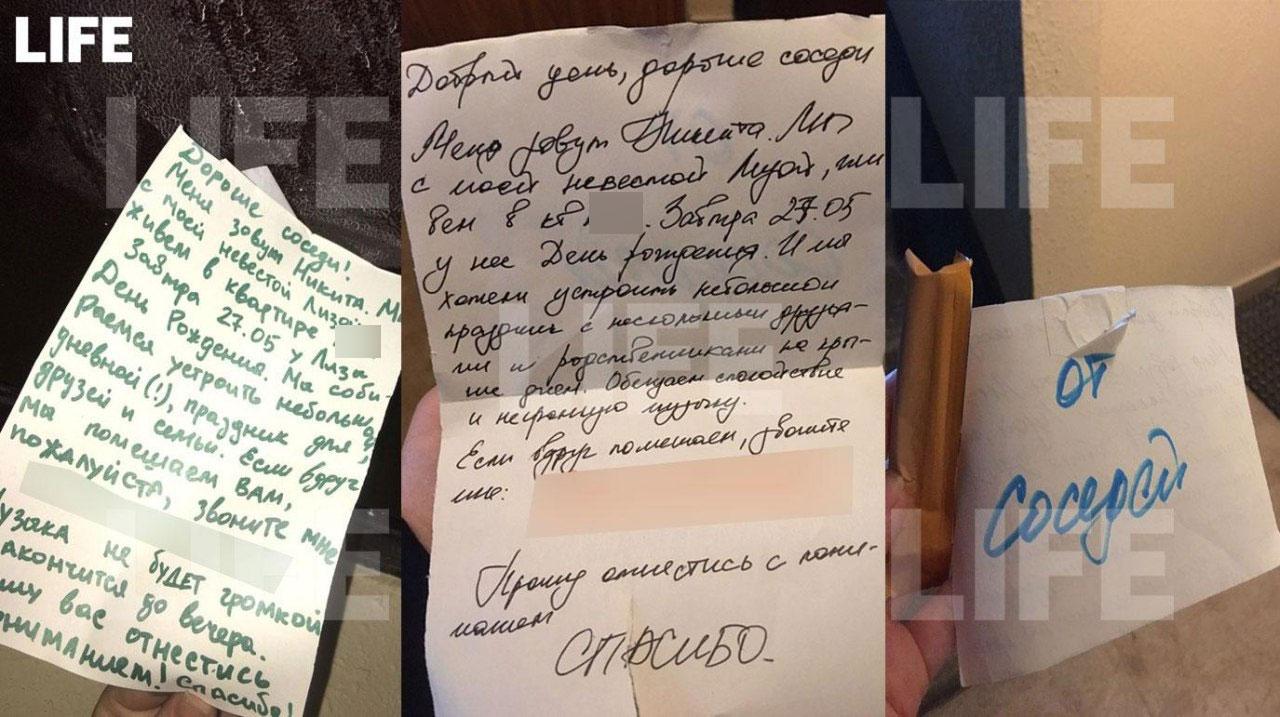 LIFE
Дорогие соседи!
Меня зовут Никита. Мы
с моей невестой Лизой
живем в квартире
Завтра 27.05 у Лизы
День Рождения. Мы соби-
раемся устроить небольшой
дневной(!), праздник для
друзей и семьи. Если вдруг
мы помешаем вам,
пожалуйста, звоните мне
узыка не будет громкой
акончится до вечера.
шу вас отнестись
ониманием! Спасибо!
Добрый день, дорогие соседи
Меня зовут Никита. Мы
с моей невестой Лизой, жи
вем в кв . Завтра 27.05
у нее День рождения. И мы
хотели устроить небольшой
праздник с несколькими друзья-
ми и родственниками на кры-
ше днем. Обещаем спокойствие
и негромкую музыку.
Если вдруг помешаем, звоните
мне:
Прошу отнестись с пони-
манием
СПАСИБО.
от
Соседей
LIFE
LIFE
LIFE
LIFE
LIFE
LIFE